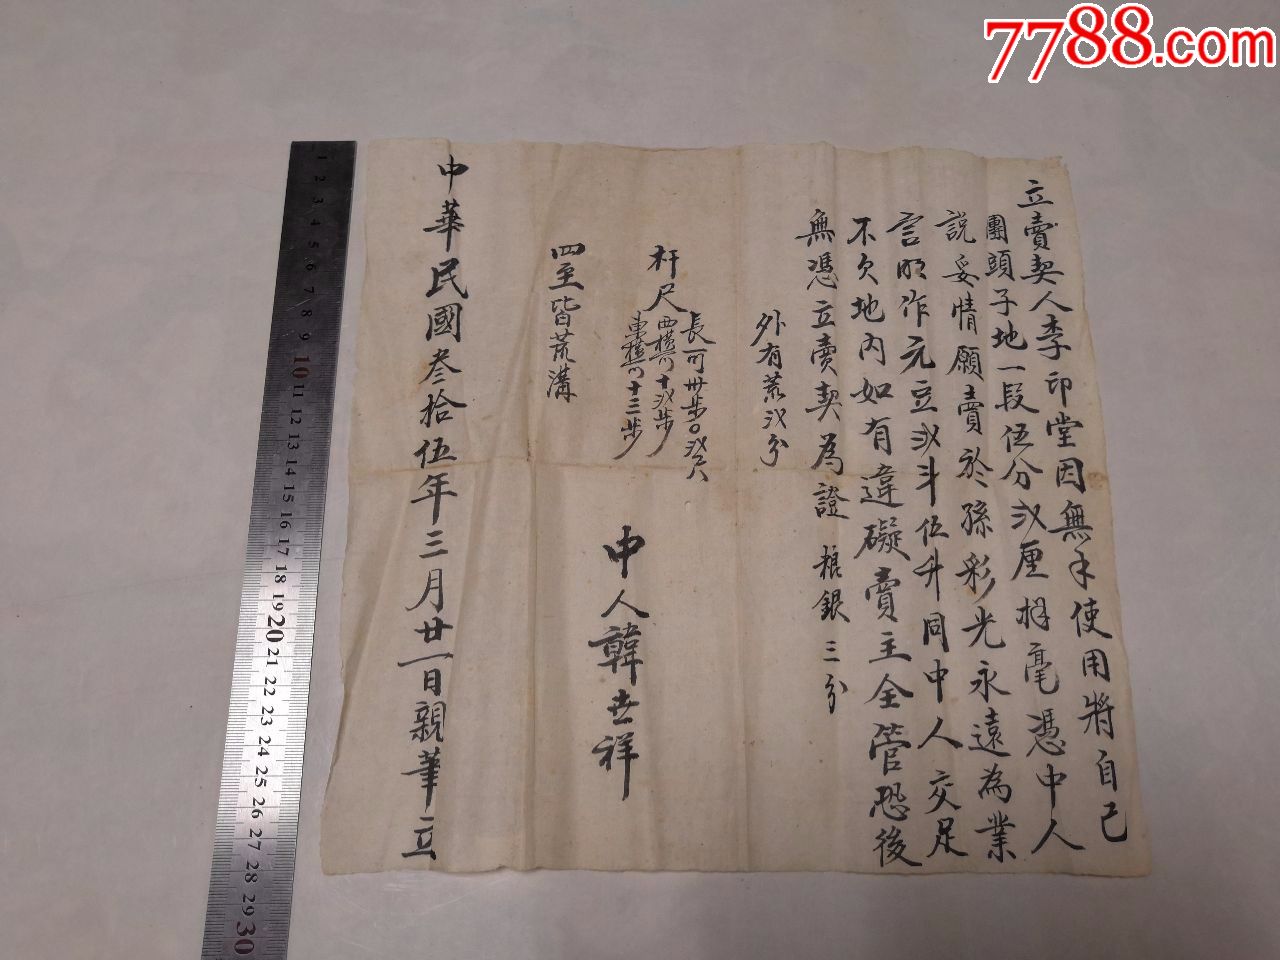 7788.com
立賣契人李印堂因無手使用將自己
團頭子地一段伍分弍厘 毫憑中人
說妥情願賣於孫彩光永遠為業
言明作元豆弍斗伍升同中人交足
不欠地內如有違礙賣主全管恐後
無憑立賣契為證 糧銀三分
外有荒弍分
長可卅步〇弍尺
杆尺 西橫可十弍步
東橫可十三步
四至皆荒溝
中人韓世祥
中華民國叁拾伍年三月廿一日親筆立
1 2 3 4 5 6 7 8 9 10 11 12 13 14 15 16 17 18 19 20 21 22 23 24 25 26 27 28 29 30